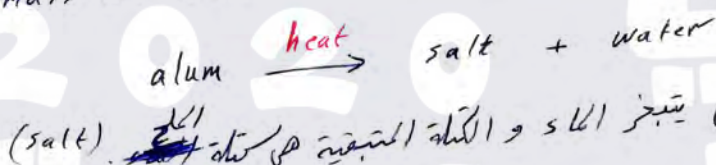 alum heat → salt + water
يتبخر الماء و الكتلة المتبقية هي كتلة الملح (salt)